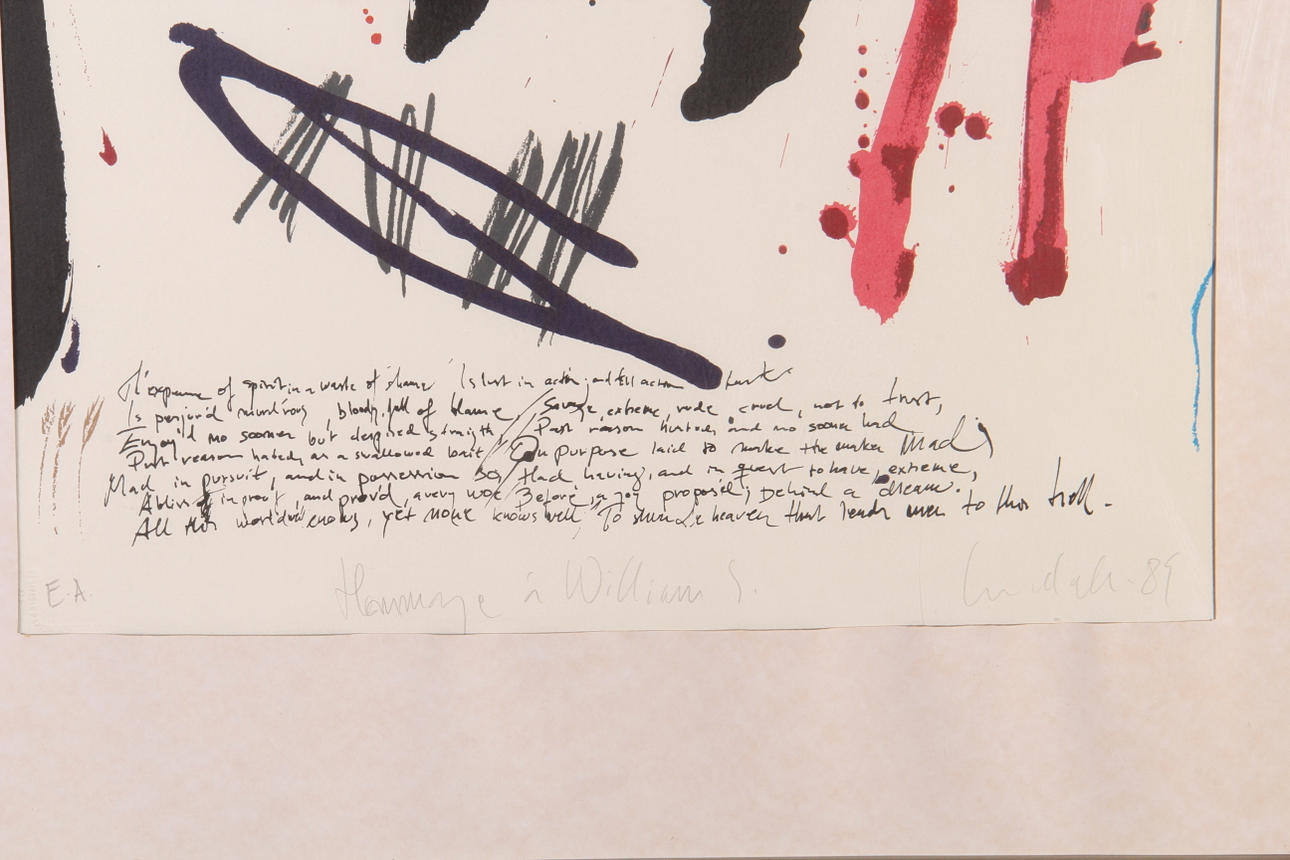 Th'expense of spirit in a waste of shame Is lust in action, and till action lust
Is perjur'd murd'rous, bloody, full of blame Savage, extreme, rude, cruel, not to trust,
Enjoy'd no sooner but despised straight Past reason hunted, and no sooner had
Past reason hated, as a swallowed bait On purpose laid to make the maker Mad
Mad in pursuit, and in possession so, Had, having, and in quest to have, extreme,
A bliss in proof, and prov'd, a very woe Before, a joy propos'd, behind a dream.
All this world well knows, yet none knows well, To shun heaven that leads men to this hell.
E.A. Hommage à William S. 89